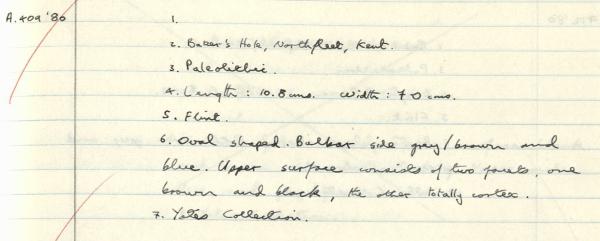 A.409 '80 1.
2. Baker's Hole, Northfleet, Kent.
3. Paleolithic.
4. Length : 10.8 cms. Width : 7.0 cms.
5. Flint.
6. Oval shaped. Bulbar side grey/brown and
blue. Upper surface consists of two facets, one
brown and black, the other totally cortex.
7. Yates Collection.